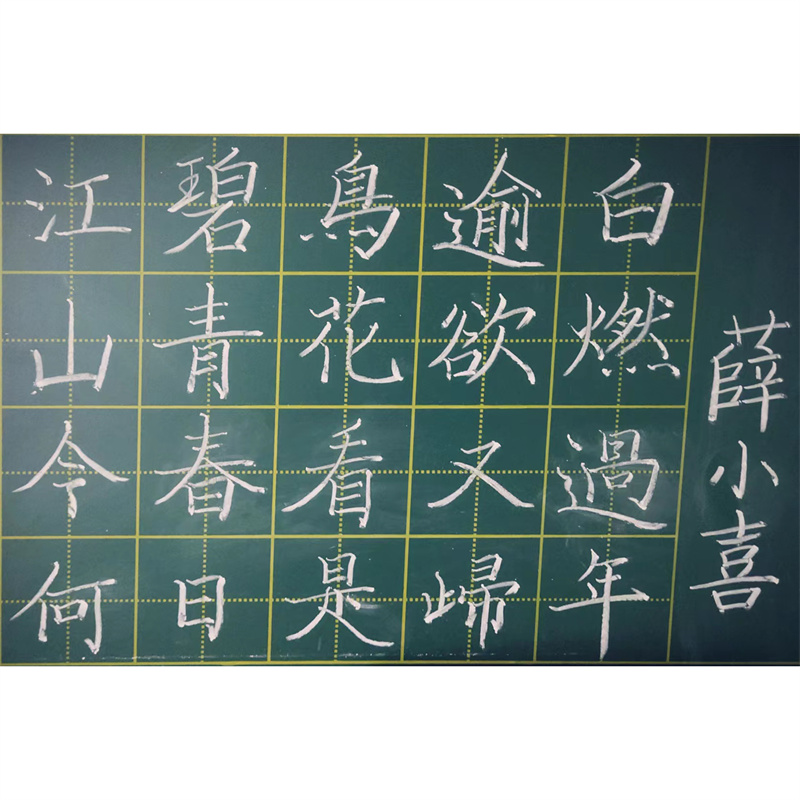 江碧鳥逾白
山青花欲燃
今春看又過
何日是㱕年
薛小喜